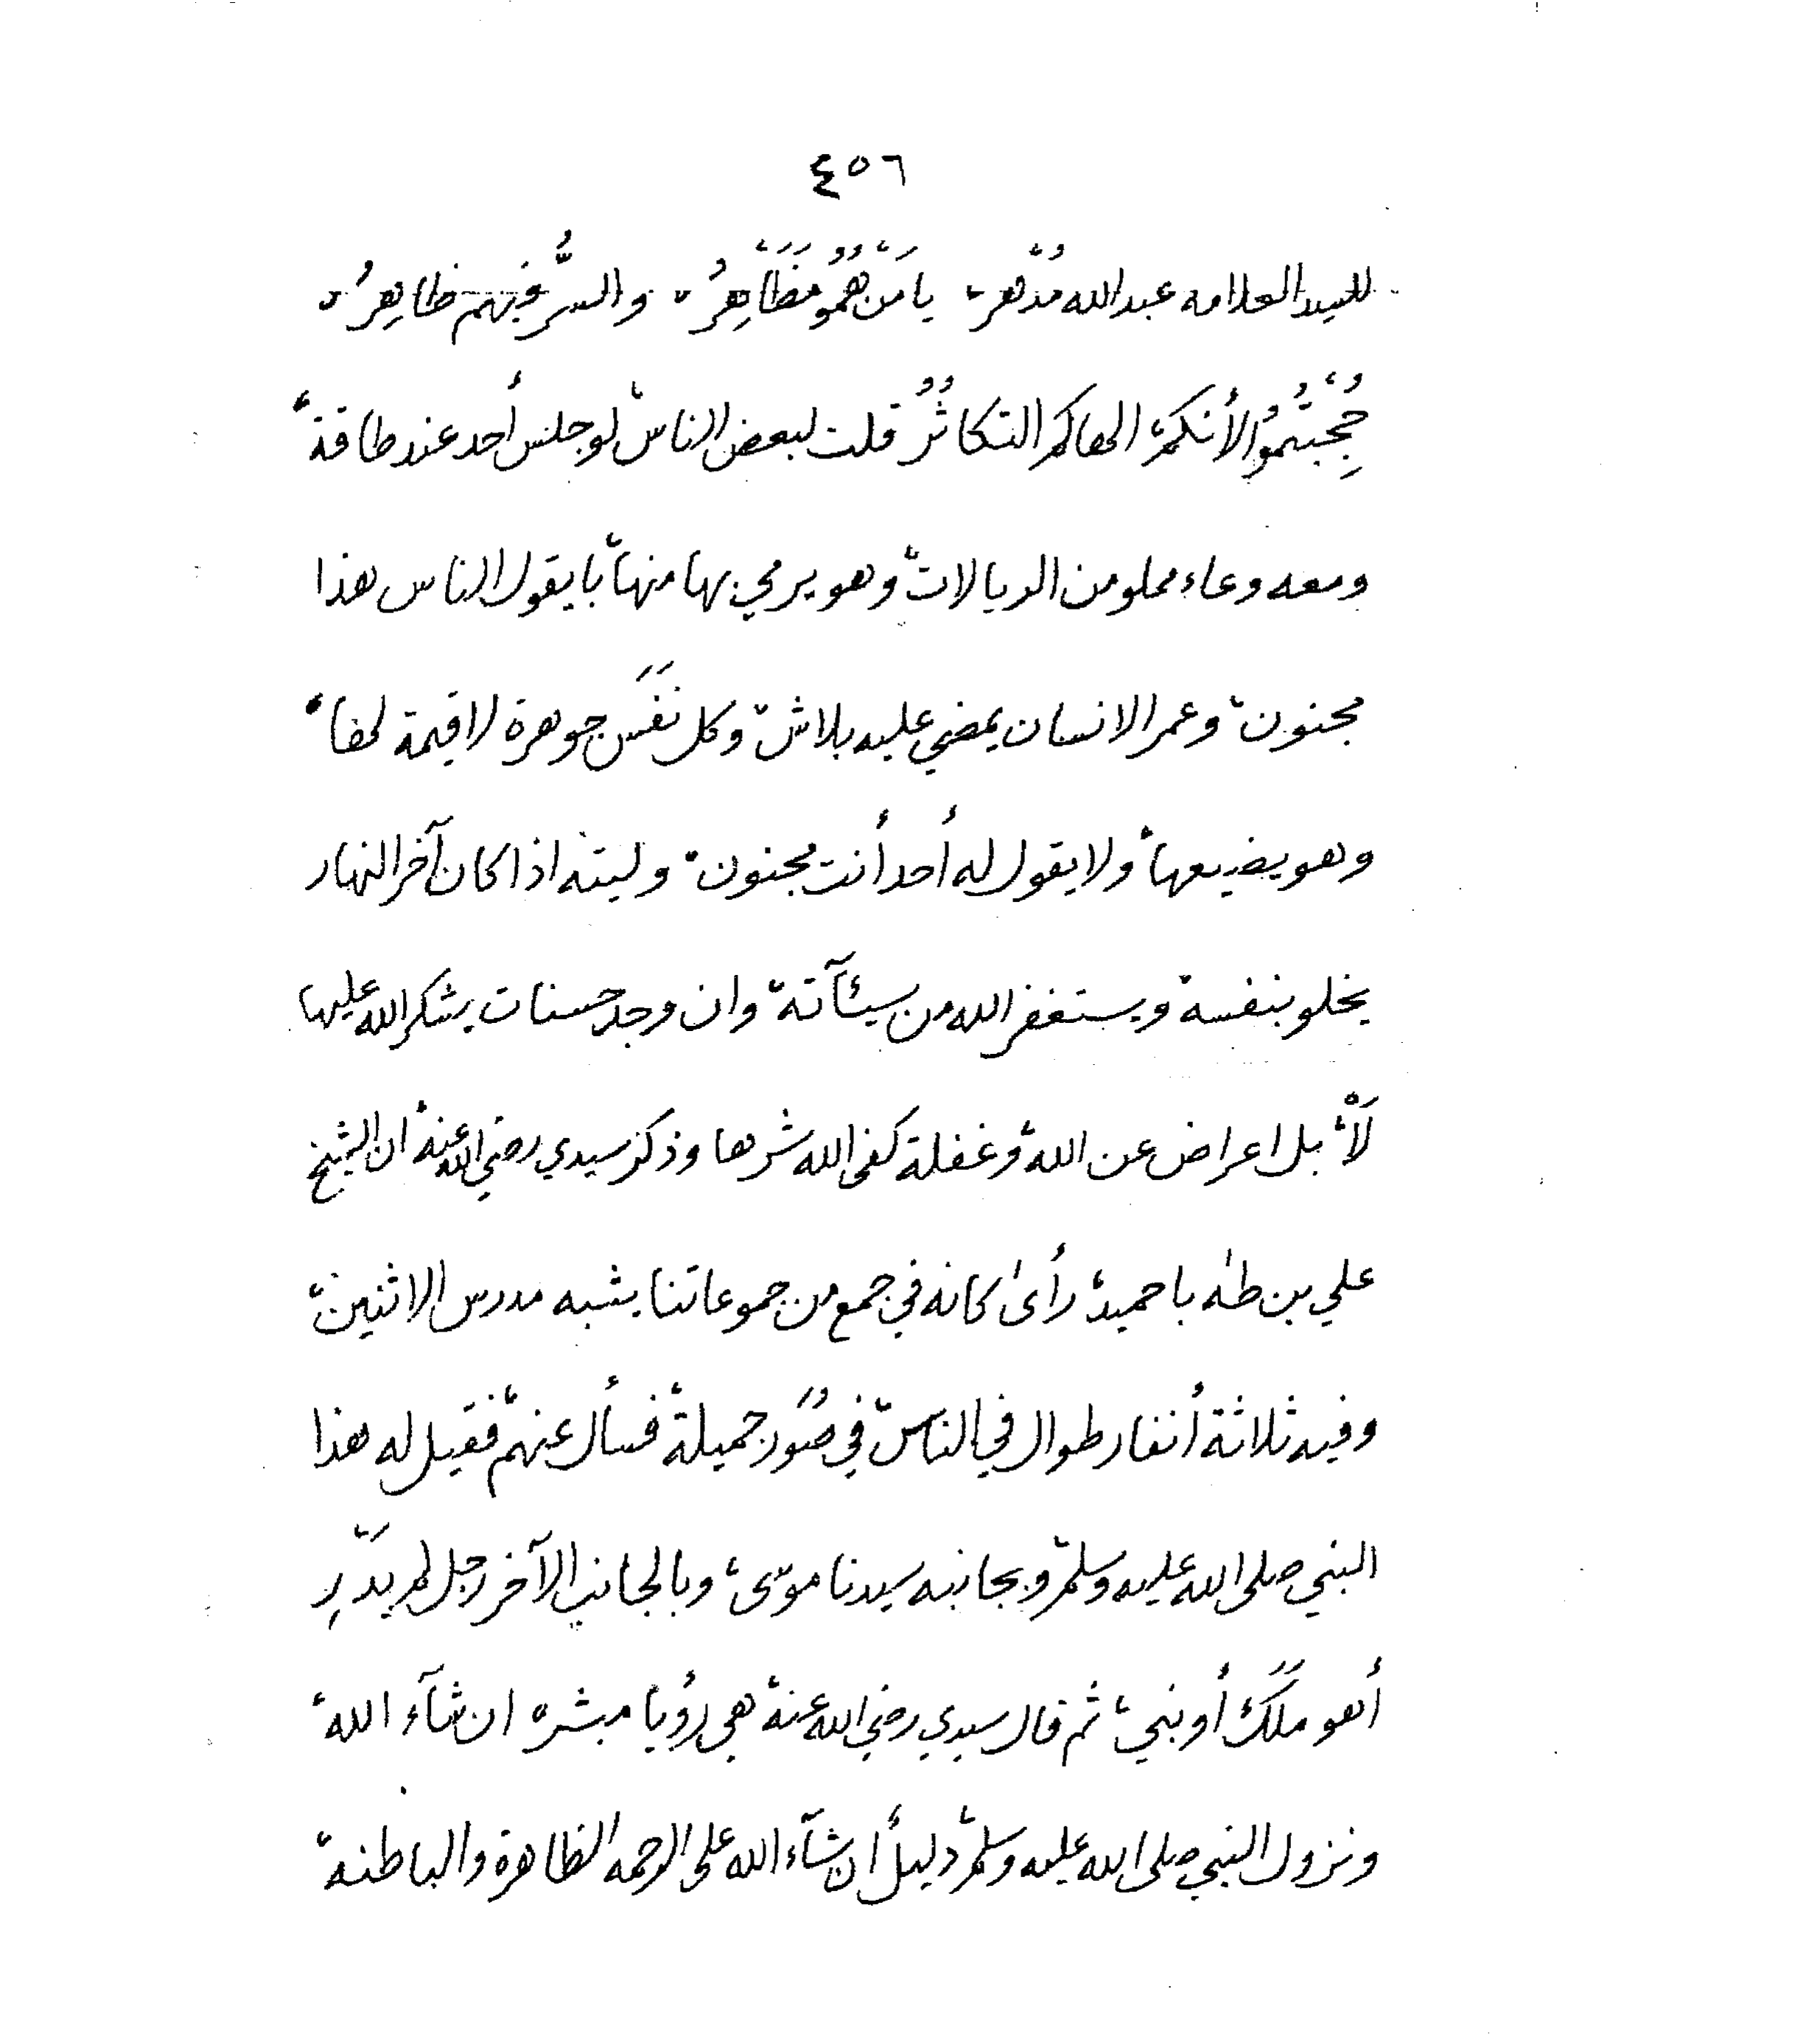 ٤٥٦
للسيد العلامه عبد الله مُدْهر، يا مَنْ هُمُو مَظَاْهِرُ، والسِّرُّ فيهم ظاهِرُ،
حُجِبْتُمُو لأنكمْ، الهاكم التكاثُرُ قلت لبعض الناس، لو جلس أحد عند طاقة،
ومعه وعاء مملو من الريالات، وهو يرمي بها منها، با يقول الناس هذا
مجنون، وعمر الانسان يمضي عليه بلاش، وكل نَفَس جوهرة لا قيمة لها،
وهو يضيعها، ولا يقول له أحد أنت مجنون، وليته اذا كان آخر النهار
يخلو بنفسه، ويستغفر الله من سيئآته، وان وجد حسنات يشكر الله عليها
لَاْ، بل اعراض عن الله، وغفلة كفى الله شرها وذكر سيدي رضي الله عنه، ان الشيخ
علي بن طه باحميد، رأى كانه في جمع من جموعاتنا يشبه مدرس الاثنين،
وفيه ثلاثة أنفار طوال في الناس، في صُوَر جميلة، فسأل عنهم، فقيل له هذا
النبي صلى الله عليه وسلم، وبجانبه سيدنا موسى، وبالجانب الآخر رجل لم يَدْرِ
أهو مَلَك، أو نبي، ثم قال سيدي رضي الله عنه، هي رؤيا مبشره ان شآء الله،
ونزول النبي صلى الله عليه وسلم، دليل أن شآء الله على الرحمه الظاهرة والباطنه،